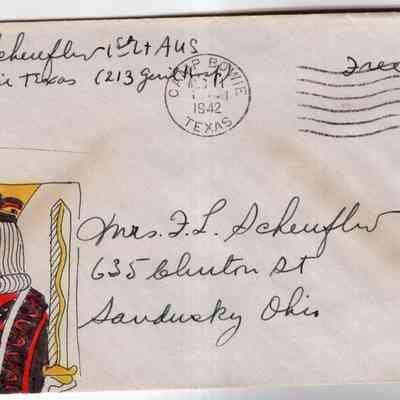 Scheufler 1st Lt AUS
ie Texas (213 Genl Hosp)
Free
CAMP BOWIE
1942
TEXAS
Mrs. F. L. Scheufler
635 Clinton St
Sandusky Ohio